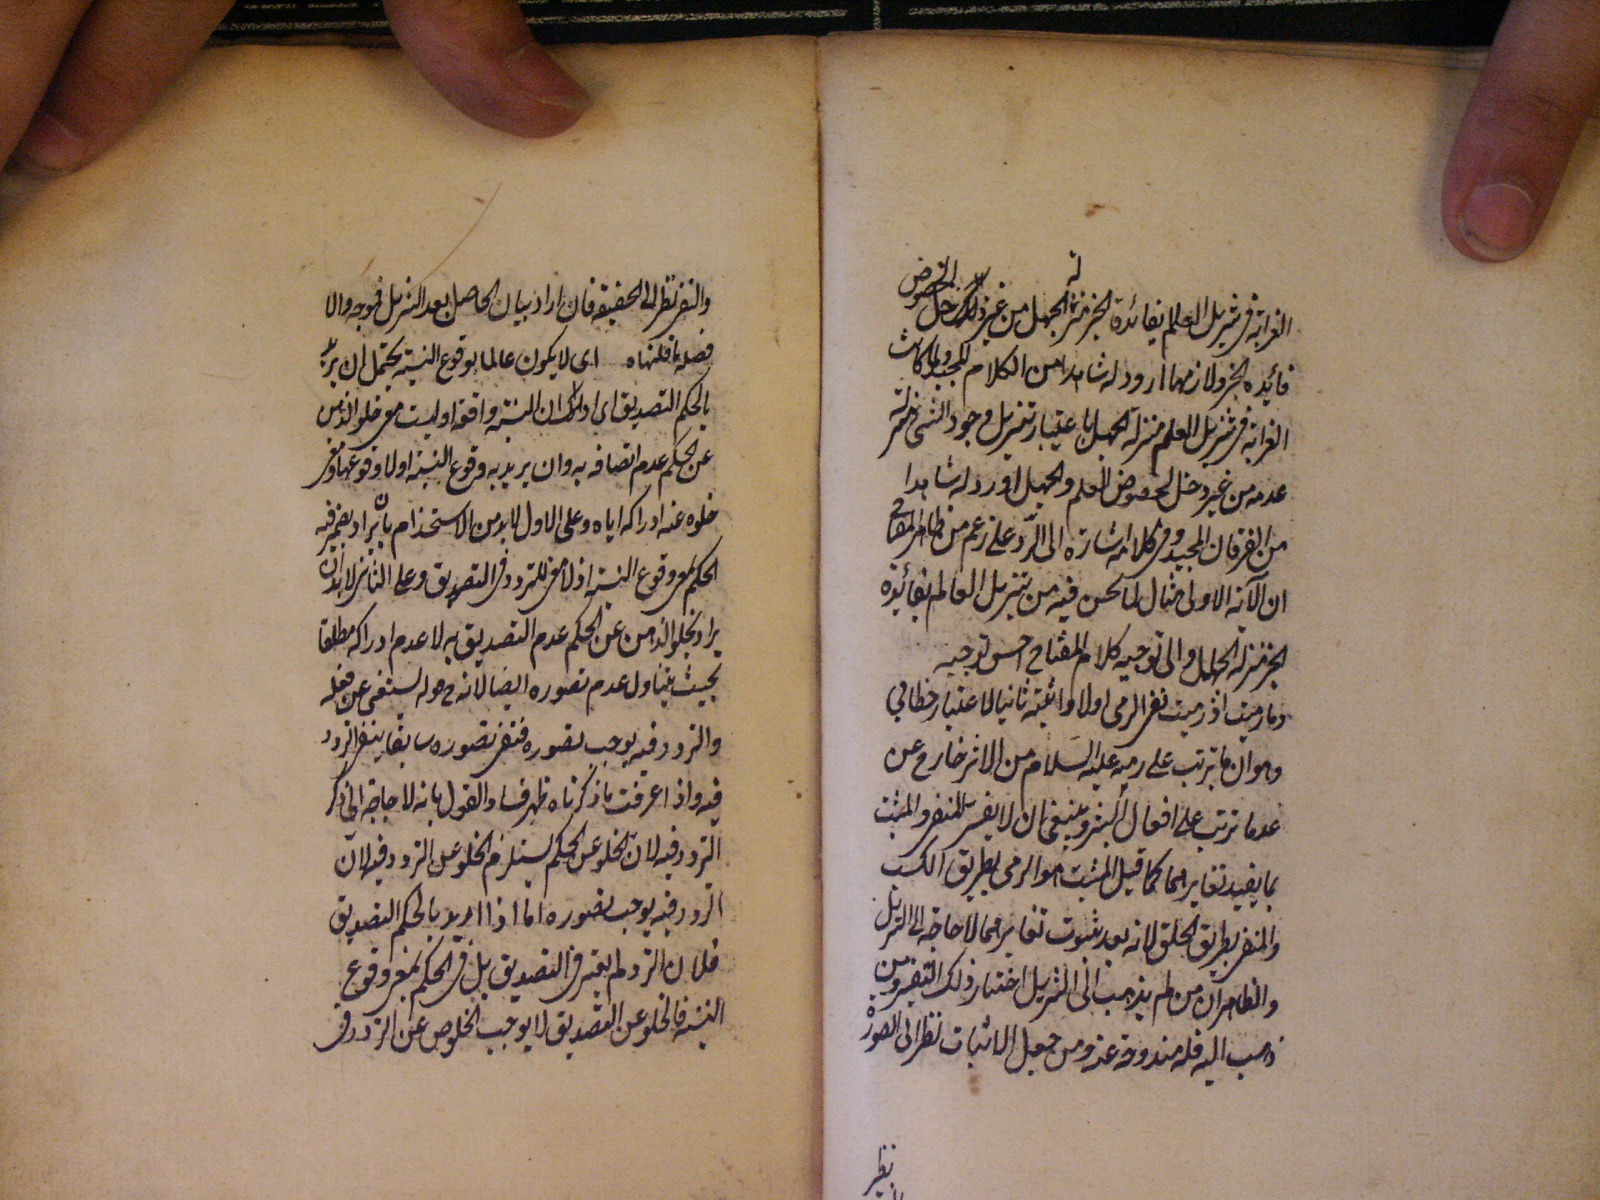 الغرابة فى تنزيل العلم بفائدة الخبر منزلة الجهل من غير ذلك خل الخصوص
فائدة الخبر ولازمها اورد له شاهدا من الكلام المجيد ولما كانت
الغرابة فى تنزيل العلم منزلة الجهل باعتبار تنزيل وجود الشئ منزلة
عدمه من غير دخل لخصوص العلم والجهل اورد له شاهدا
من الفرقان المجيد وفى كلامه اشارة الى الرد على زعم من ظاهر المفتاح
ان الآية الاولى مثال لما نحن فيه من تنزيل العالم بفائدة
الخبر منزلة الجاهل والى توجيه كلام المفتاح احسن توجيه
وما رميت اذ رميت نفى الرمى اولا واثبته ثانيا لاعتبار خطابي
وهو ان ما ترتب على رميه عليه السلام من الاثر خارج عن
عدما ترتب على افعال البشر وينبغى ان لا يفسر المنفى والمثبت
بما يفيد تغايرهما كما قيل المثبت هو الرمى بطريق الكسب
والمنفى بطريق الخلق لانه بعد ثبوت تغايرهما لا حاجة الى التنزيل
والظاهر ان من لم يذهب الى التنزيل اختار ذلك التفسير ومن
ذهب اليه فله مندوحة عنه ومن جعل الاثبات نظرا الى الصورة
نظر
والنفى نظرا الى الحقيقة فان اراد بيان الحاصل بعد التنزيل فوجه والا
فضله ما قلناه اى لا يكون عالما بوقوع النسبة يحتمل ان يريد
بالحكم التصديق اى ادراك ان النسبة واقعة او ليست مع خلو الذهن
عن الحكم عدم اتصافه به وان يريد به وقوع النسبة او لا وقوعها ومعنى
خلوه عنه ادراكه اياه وعلى الاول لا بد من الاستخدام بان يراد بضمير فيه
الحكم بمعنى وقوع النسبة اذ لا معنى للتردد فى التصديق وعلى الثانى لا بد ان
يراد بخلو الذهن عن الحكم عدم التصديق به لا عدم ادراكه مطلقا
بحيث يتناول عدم تصوره ايضا لانه ح قوله يستغنى عن فعله
والتردد فيه يوجب تصوره فنفى تصوره سابقا ينفى التردد
فيه واذا عرفت ما ذكرناه ظهر فساد القول بانه لا حاجة الى ذكر
التردد فيه لان الخلو عن الحكم يستلزم الخلو عن التردد فيه لان
التردد فيه يوجب تصوره اما اذا اريد بالحكم التصديق
فلان التردد لم يعتبر فى التصديق بل فى الحكم بمعنى وقوع
النسبة فالخلو عن التصديق لا يوجب الخلوص عن التردد فى